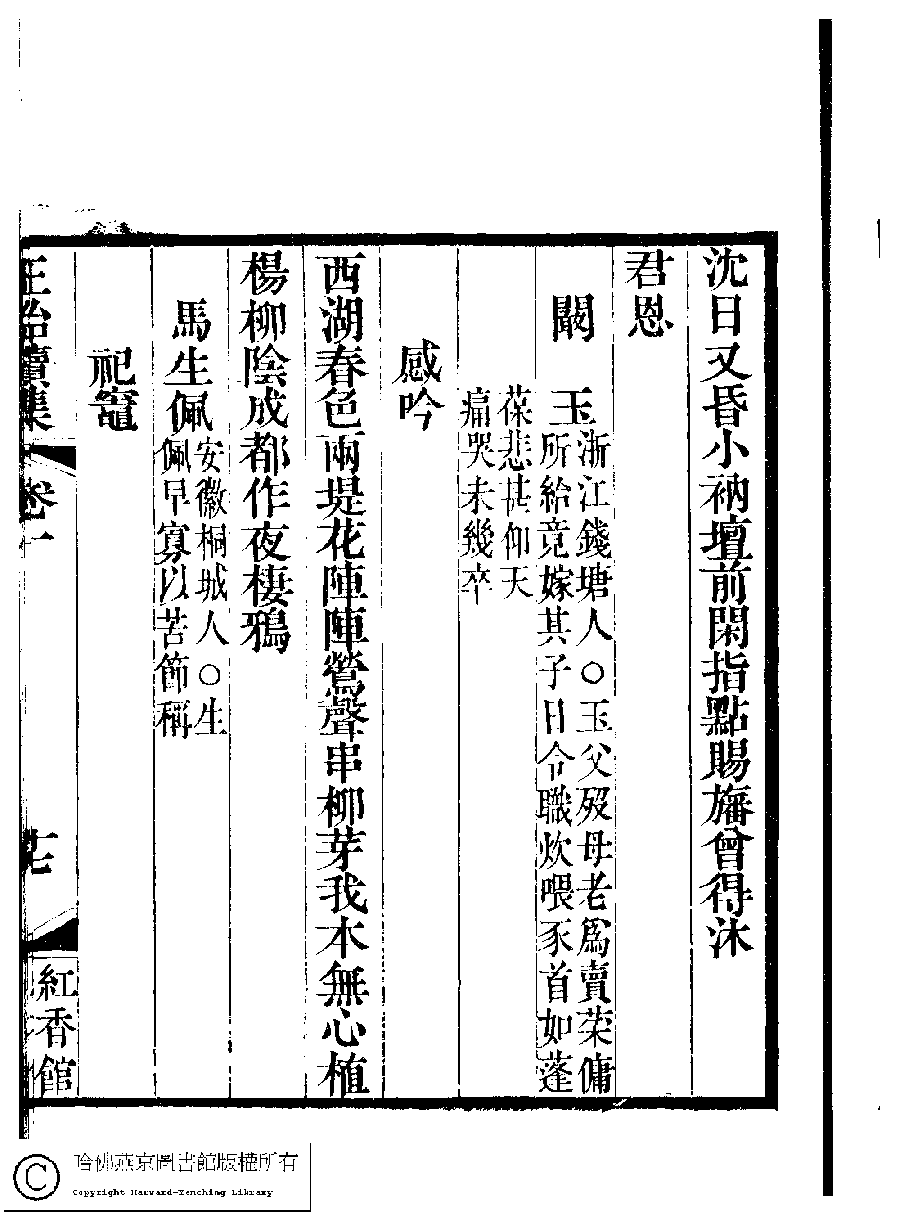 沈日又昏小衲壇前閑指點賜旛曾得沐
君恩
闞玉浙江錢塘人○玉父歿母老爲賣菜傭
所給竟嫁其子日令職炊喂豕首如蓬
葆悲甚仰天
痛哭未幾卒
感吟
西湖春色兩堤花陣陣鶯聲串柳芽我本無心植
楊柳陰成都作夜棲鴉
馬生佩安徽桐城人○生
佩早寡以苦節稱
祀竈
正始續集
卷一
七
紅香館
哈佛燕京圖書館版權所有
Copyright Harvard-Yenching Library